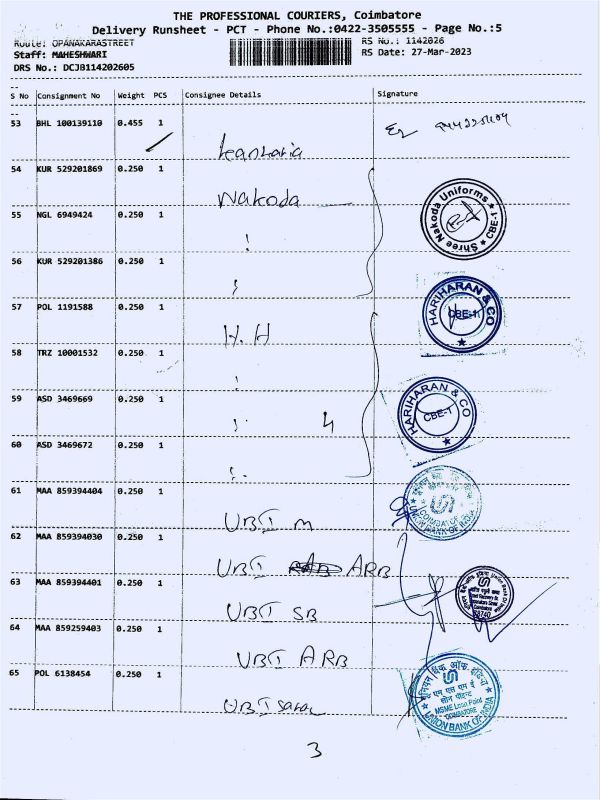 THE PROFESSIONAL COURIERS, Coimbatore
Delivery Runsheet - PCT - Phone No.:0422-3505555 - Page No.:5
Route: OPANAKARASTREET
RS No.: 1142026
Staff: MAHESHWARI
RS Date: 27-Mar-2023
DRS No.: DCJB114202605
S No Consignment No Weight PCS Consignee Details Signature
53 BHL 100139110 0.455 1
Kankaria
54 KUR 529201869 0.250 1
Nakoda
Shree Nakoda Uniforms
CBE-1
55 NGL 6949424 0.250 1
56 KUR 529201386 0.250 1
57 POL 1191588 0.250 1
H.H
HARIHARAN & CO
CBE-1
58 TRZ 10001532 0.250 1
59 ASD 3469669 0.250 1
4
HARIHARAN & CO
CBE-1
60 ASD 3469672 0.250 1
61 MAA 859394404 0.250 1
UBI M
UNION BANK OF INDIA
62 MAA 859394030 0.250 1
UBI ARB
63 MAA 859394401 0.250 1
UBI SB
64 MAA 859259403 0.250 1
UBI ARB
65 POL 6138454 0.250 1
UBI Saral
यूनियन बैंक ऑफ इंडिया
MSME Loan Point
COIMBATORE
UNION BANK OF INDIA
3